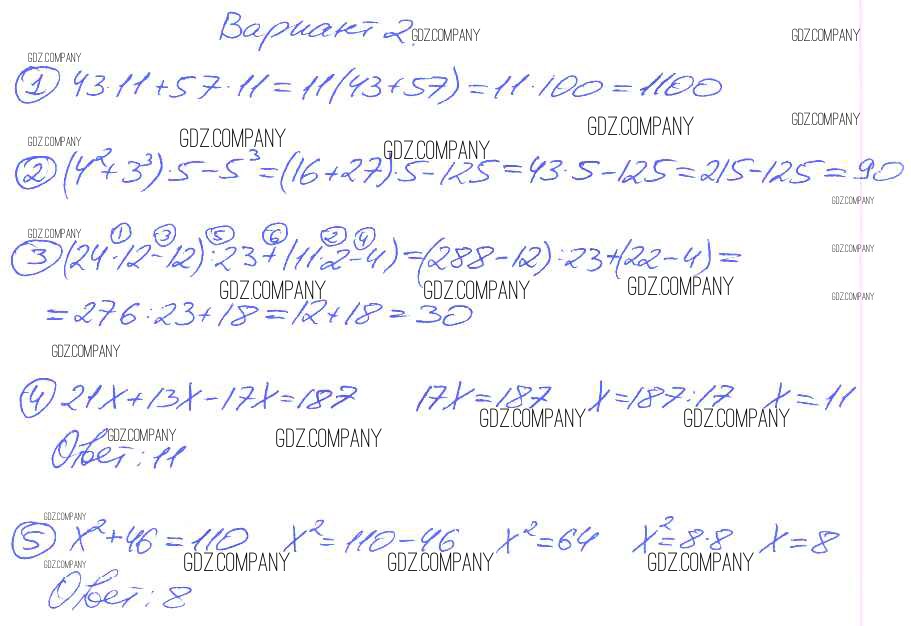 Вариант 2. GDZ.COMPANY GDZ.COMPANY
GDZ.COMPANY
① 43·11+57·11=11(43+57)=11·100=1100
GDZ.COMPANY GDZ.COMPANY GDZ.COMPANY GDZ.COMPANY GDZ.COMPANY
② (4²+3³)·5-5³=(16+27)·5-125=43·5-125=215-125=90
GDZ.COMPANY
GDZ.COMPANY ① ③ ⑤ ⑥ ② ④
③ (24·12-12):23+(11·2-4)=(288-12):23+(22-4)=
GDZ.COMPANY
GDZ.COMPANY GDZ.COMPANY GDZ.COMPANY GDZ.COMPANY
=276:23+18=12+18=30
GDZ.COMPANY
④ 21x+13x-17x=187 17x=187 x=187:17 x=11
GDZ.COMPANY GDZ.COMPANY
GDZ.COMPANY GDZ.COMPANY
Ответ: 11
GDZ.COMPANY
⑤ x²+46=110 x²=110-46 x²=64 x²=8·8 x=8
GDZ.COMPANY GDZ.COMPANY GDZ.COMPANY GDZ.COMPANY
Ответ: 8